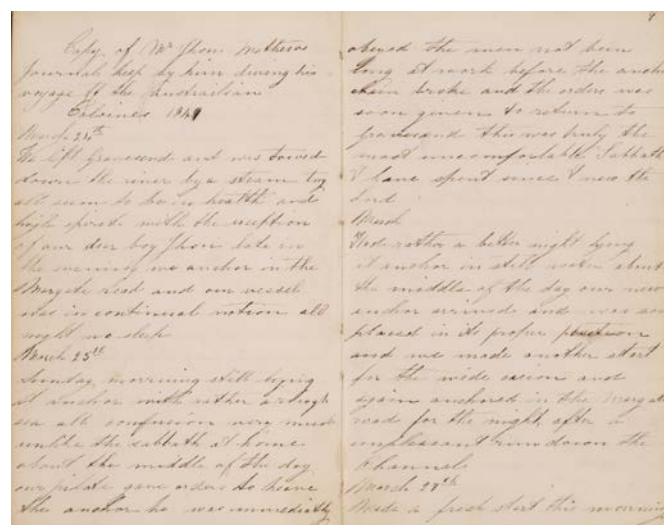 Copy of Mr Jhon Mathews
Journal keep by him during his
voyage to the Australian
Colonies 1849
March 24th
We left Gravesend and was towed
down the river by a steam tug
all seem to be in health and
high spirits with the exception
of our deer boy Jhon late in
the evening we anchor in the
Margate Road and our vessel
was in continual motion all
night no sleep
March 25th
Sunday morning still lying
at anchor with rather a rough
sea all confusion very much
unlike the sabbath at home
about the middle of the day
our pilote gave orders to heave
the anchor he was immediatly
9
obeyed the men not been
long at work before the anchor
chain broke and the orders was
soon given to return to
gravesend this was truly the
most uncomfortable Sabbath
I have spent since I new the
Lord
March
Had rather a better night lying
at anchor in still water about
the middle of the day our new
anchor arrived and was soon
placed in its proper position
and we made another start
for the wide ocion and
again anchored in the Margate
road for the night after a
unpleasant run down the
Channel
March 27th
Made a fresh start this morning